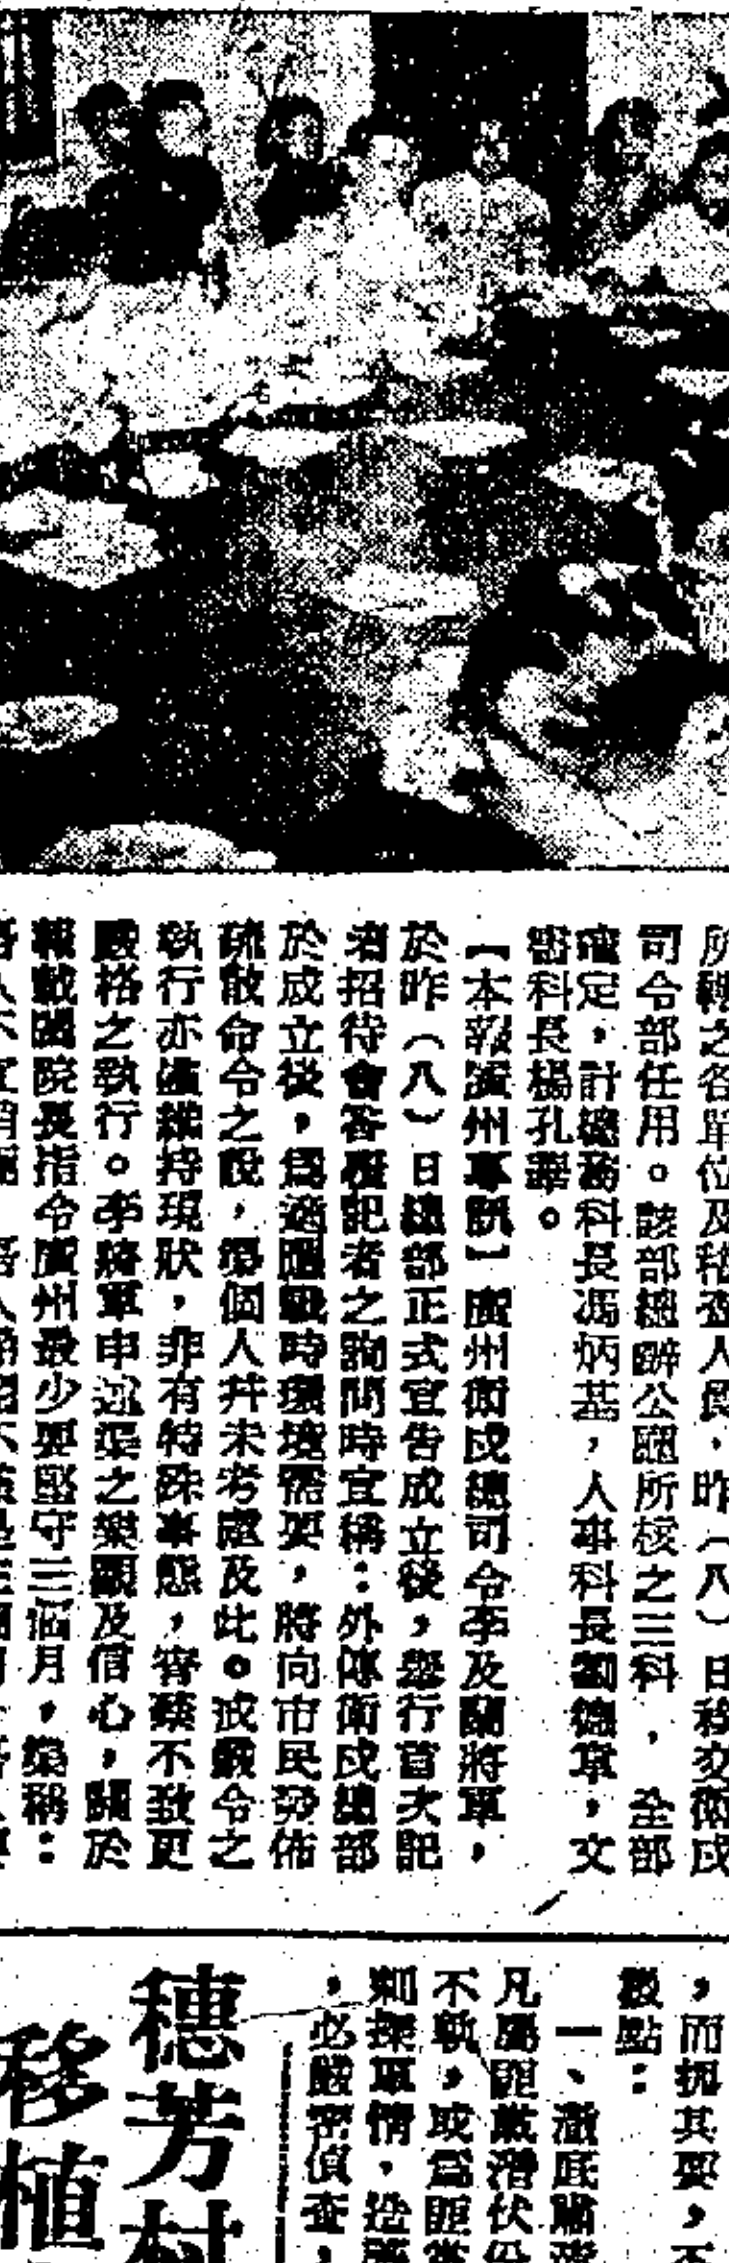 所轄之各單位及稽查人員，昨（八）日移交衛戍
司令部任用。該部總辦公廳所核之三科，全部
確定，計總務科長馮炳基，人事科長劉德章，文
書科長楊孔
【本報廣州專訊】廣州衛戍總司令李及蘭將軍，
於昨（八）日總部正式宣告成立後，舉行首次記
者招待會答覆記者之詢問時宣稱：外傳衛戍總部
於成立後，爲適應戰時環境需要，將向市民發佈
疏散命令之說，學個人并未考慮及此。戒嚴令之
執行亦僅維持現狀，非有特殊事態，宵禁不致更
嚴格之執行。李將軍申述渠之樂觀及信心，關於
報載閻院長指令廣州最少要堅守三個月，渠稱：
，而扼其要，不
幾點：
一、澈底肅
凡屬匪黨潛伏份
不軌，或爲匪黨
刺探軍情，造謠
，必嚴密偵查，
穗芳村
移植